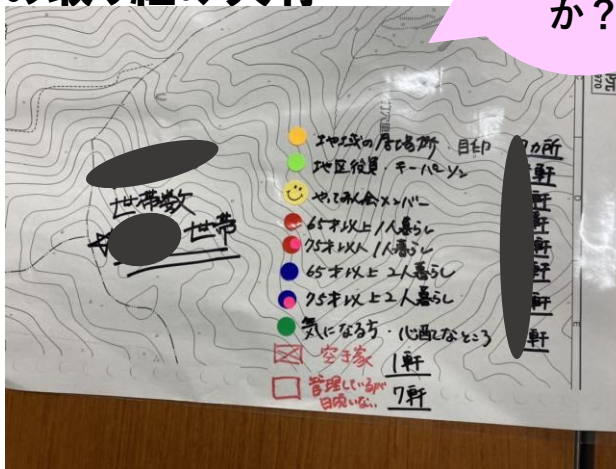 か?
地域の居場所・目印 カ所
地区役員・キーパーソン 軒
やってみん会メンバー 軒
65才以上1人暮らし 軒
75才以上1人暮らし 軒
65才以上2人暮らし 軒
75才以上2人暮らし 軒
気になる方・心配なところ 軒
空き家 1軒
管理しているが
日頃いない 7軒
世帯数
世帯